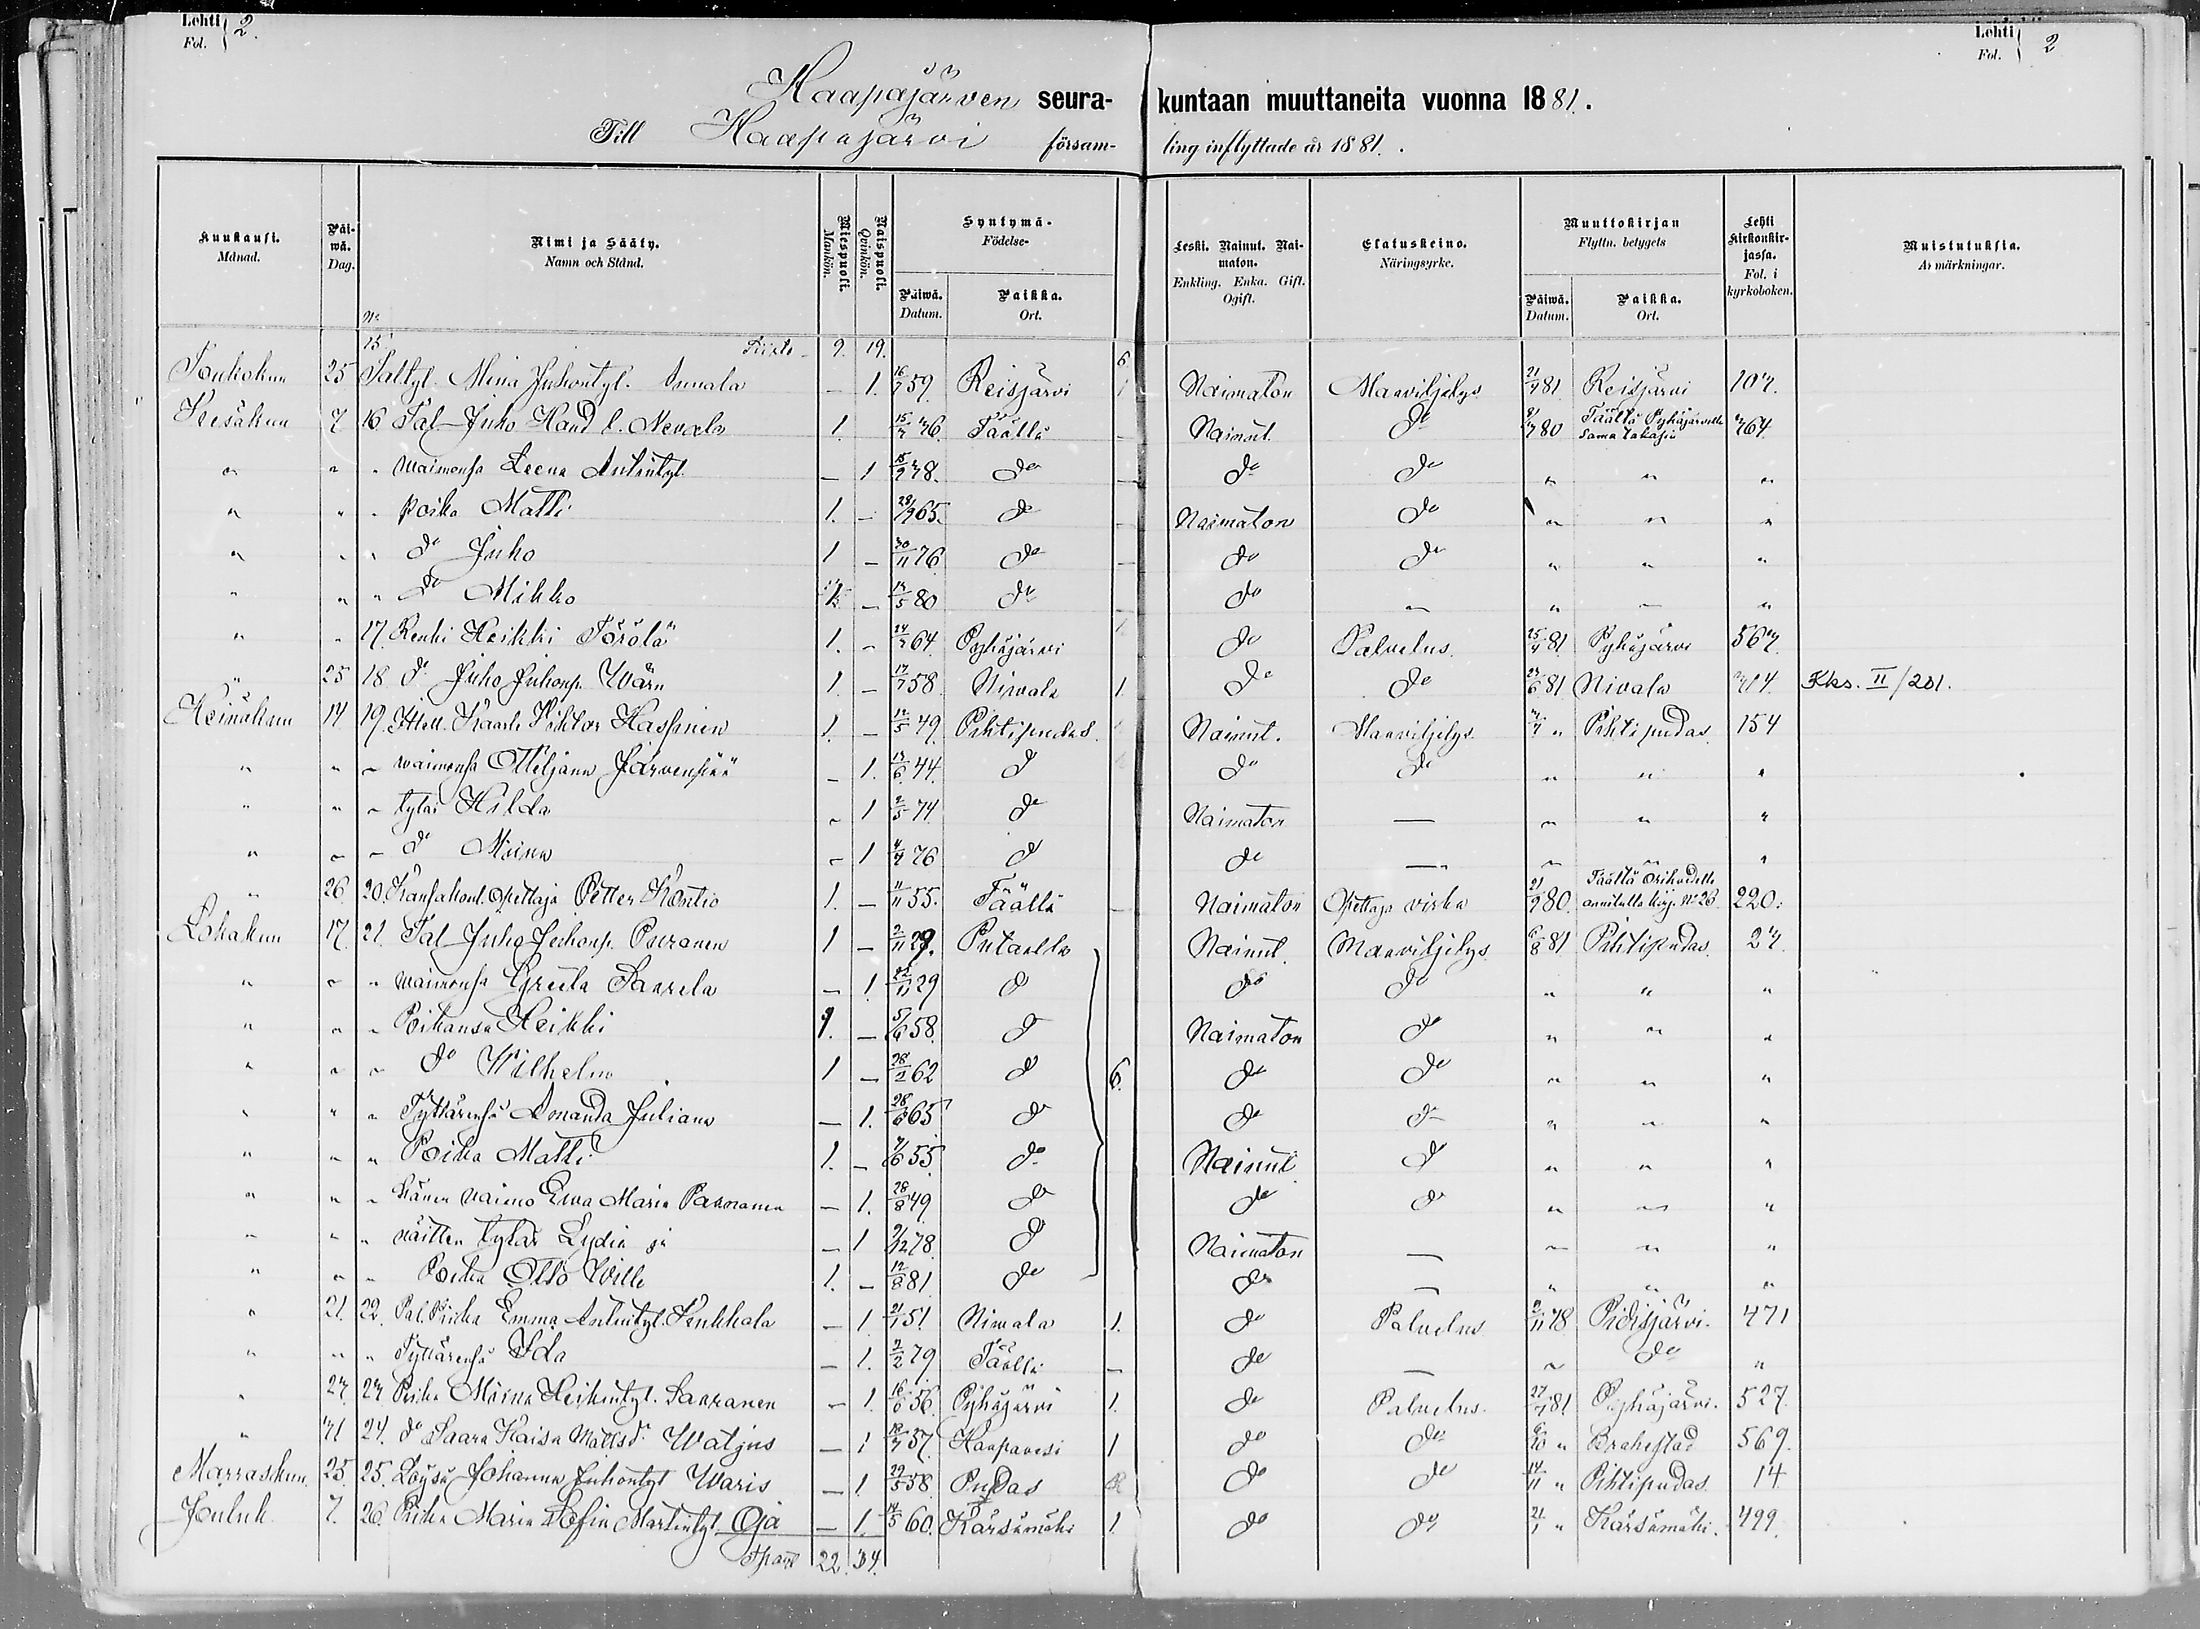 Lehti Fol. 2.
Lehti Fol. 2
Haapajärven seura- kuntaan muuttaneita vuonna 1881.
Till Haapajärvi församling inflyttade år 1881.
Kuukausi. Månad. Päiwä. Dag. Nimi ja Sääty. Namn och Stånd. Miespuoli. Mankön. Naispuoli. Qvinkön. Syntymä- Födelse- Päiwä. Datum. Paikka. Ort. Leski. Nainut. Naimaton. Enkling. Enka. Gift. Ogift. Elatuskeino. Näringsyrke. Muuttokirjan Flyttn. betygets Päiwä. Datum. Paikka. Ort. Lehti Kirkonkirjassa. Fol. i kyrkoboken. Muistutuksia. Anmärkningar.
Siirto 9. 19.
Toukokuu 25 15 Taltyt. Miina Juhontyt. Annala — 1. 16/7 59. Reisjärvi 1 Naimaton Maaviljelys 21/4 81 Reisjärvi 107.
Kesäkuu 7 16 Tal. Juho Nevala 1. Täällä — Nainut. do 80 Täältä Pyhäjärvelle sama takasin 764
" " " waimonsa Leena Antintyt. — 1 do — do do " " "
" " " poika Matti 1. — 28/9 65. do — Naimaton do " " "
" " " do Juho 1 — 30/11 76 do — do do " " "
" " " do Mikko 1 — 80 do — do — " — "
" " 17. Renki Heikki Törölä 1. — 64 Pyhäjärvi 1 do Palvelus. 25/4 81 Pyhäjärvi 567
" 25 18 do Juho Juhonp. Wärn 1. — 58 Niwala 1. do do 6 81 Nivala 714. Kks. II/201.
Heinäkuu 14 19. Kaarle Wiktor Haapinen 1. — 5 49. Pihtipudas Nainut. Maaviljelys " Pihtipudas 154
" " " waimonsa Ottiljana Järvenpää — 1. 6 44. do do do " " "
" " " tytär Hilda — 1 5 74 do Naimaton — " " "
" " " do Miina — 1 4/4 76 do do — " " "
" 26 20. Kansakoul. Opettaja Petter Kontio 1. — 11/11 55. Täällä — Naimaton Opettaja virka 21/9 80. Täältä annetulla kirj. No 26. 220.
Lokakuu 17. 21. Tal. Juho Juhonp. Puranen 1 — 2/11 29. Nainut. Maaviljelys 6/8 81 Pihtipudas. 27.
" " " waimonsa Greeta Saarela — 1. 11 29 do do do " " "
" " " Poikansa Heikki 1. — 58. do Naimaton do " " "
" " " do Wilhelm 1 — 28/2 62 do 6. do do " " "
" " " Tyttärensä Amanda Juliana — 1. 28/6 65 do do do " " "
" " " Poika Matti 1. — 6 55 do Nainut do " " "
" " " hänen vaimo Ewa Maria — 1. 28/8 49 do do do " " "
" " " näitten tytär Lydia ja — 1 12 78. do Naimaton — " " "
" " " Poika Otto Wille 1. — 8 81. do do — " " "
" 21. 22. Pal. Piika Emma Antintyt. Kenkkala — 1. 21/1 51. Niwala 1. do Palvelus 11 78 Pidisjärvi. 471
" " " Tyttärensä Ida — 1. 2/2 79 Täällä — do — " do "
" 27. 23 Piika Miina Heikintyt. Saaranen — 1. 16/6 56. Pyhäjärvi 1. do Palvelus. 81 Pyhäjärvi. 527.
" 31 24. do Saara Kaisa Mattsdr Watjus — 1 57. Haapavesi 1 do do 10 " Brahestad 569.
Marraskuu. 25. 25. Loysä Johanna Juhontyt Waris — 1 29/5 58. Pudas do do 14/11 " Pihtipudas 14
Jouluk. 7. 26. Piika Maria Sofia Martintyt. Oja — 1. 14/5 60. Kärsämäki 1 do do 21/1 " Kärsämäki. 499.
22. 34.